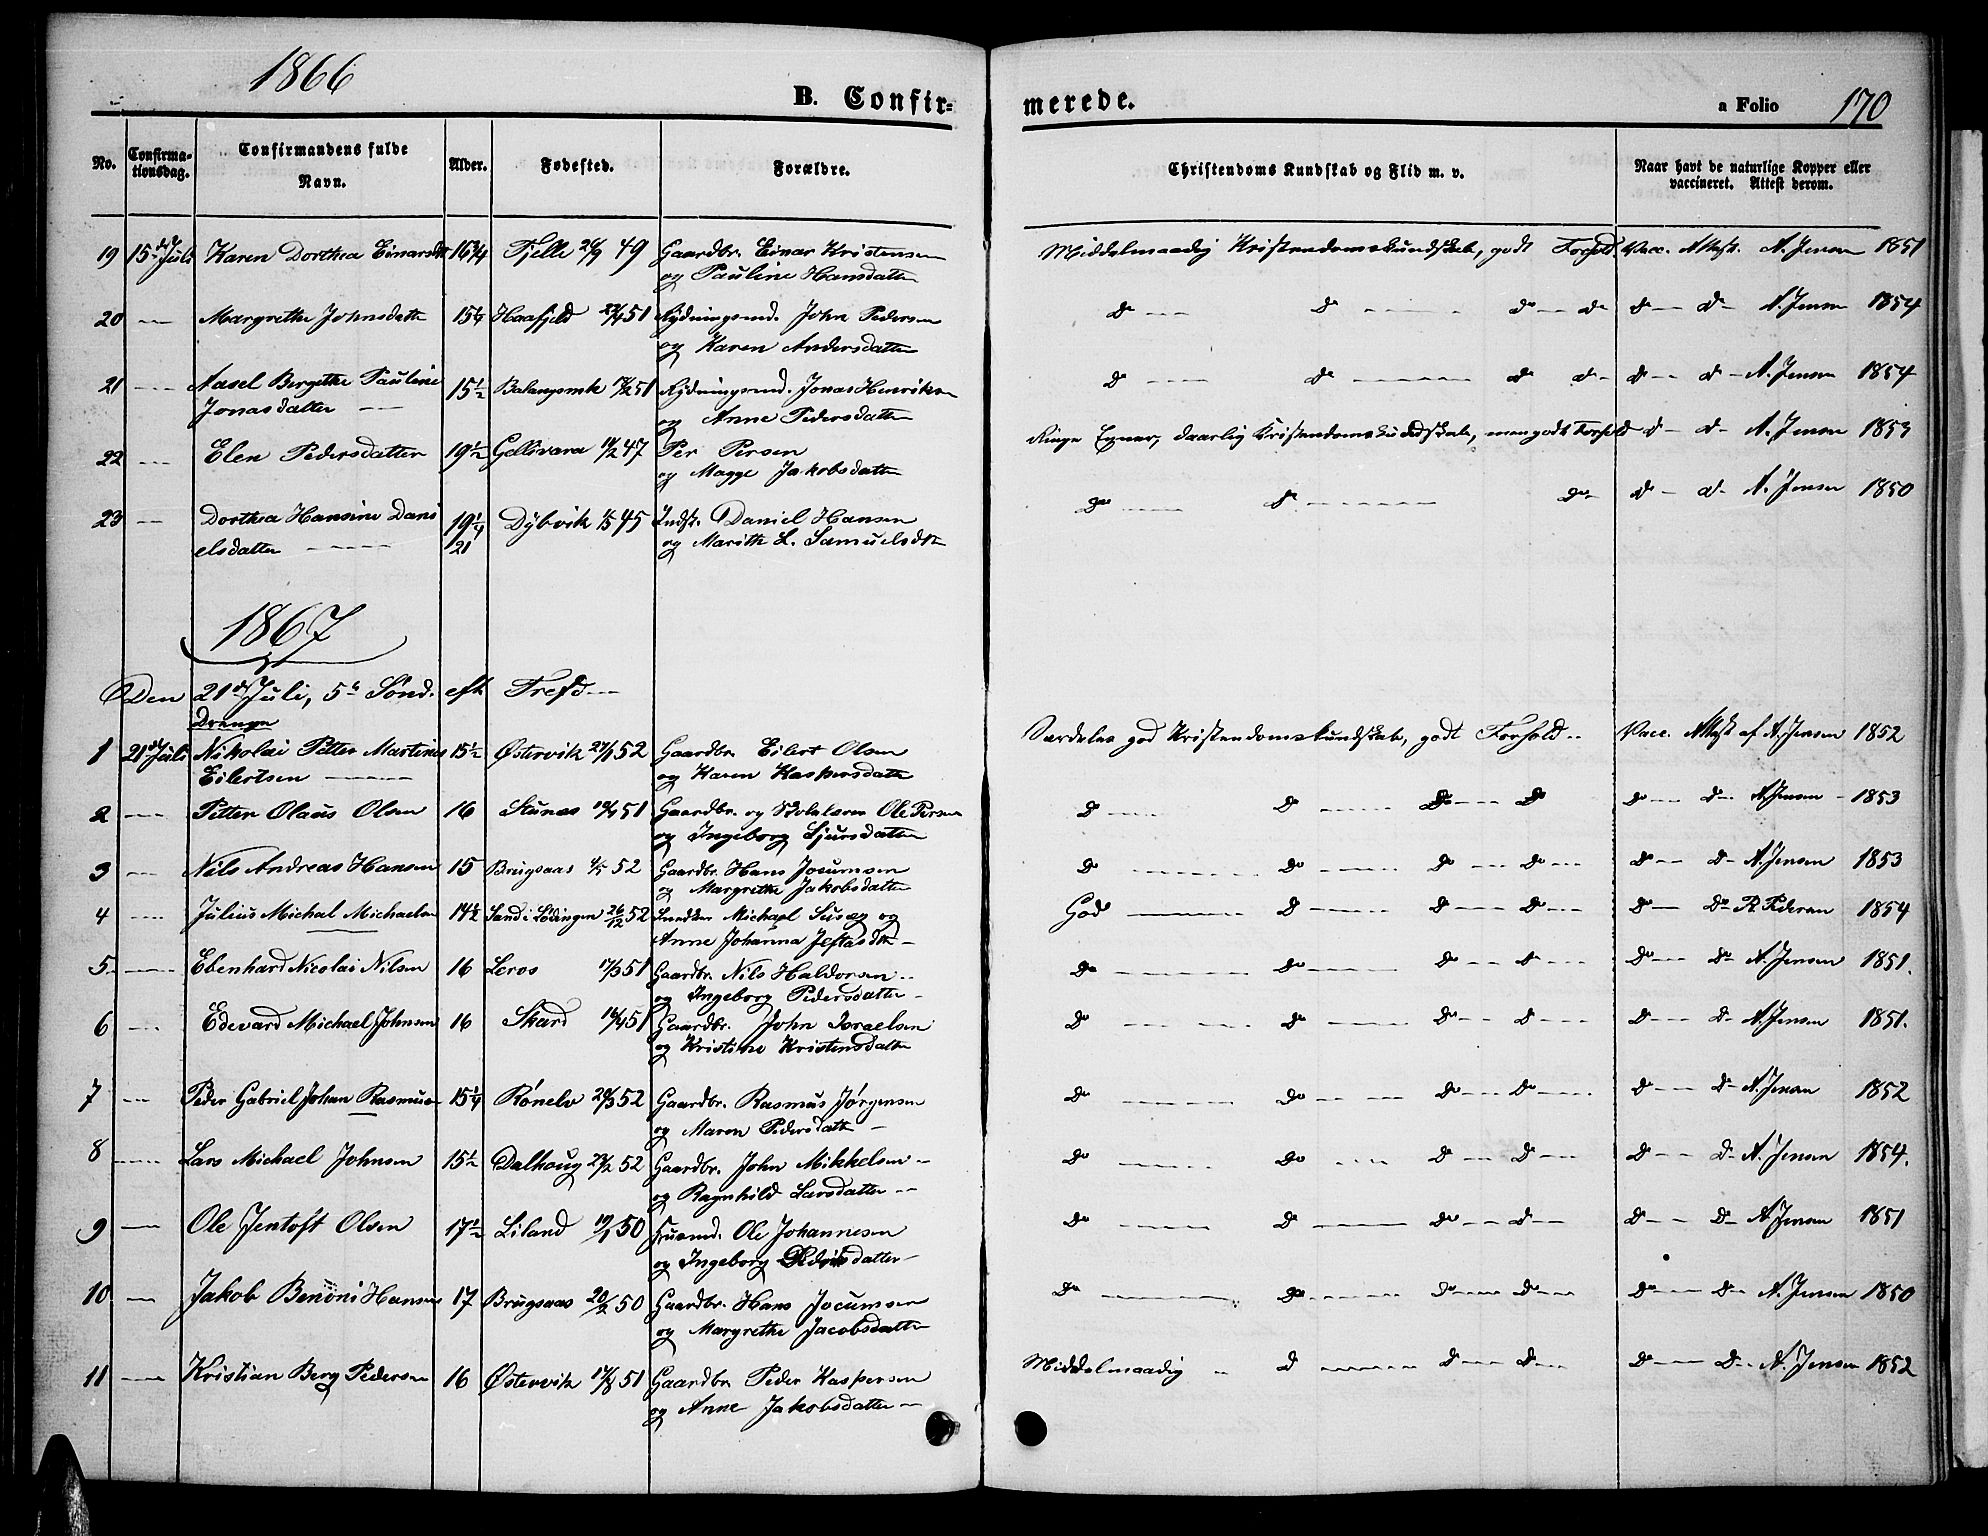 1866
B. Confirmerede.
a Folio 170
No.
Confirmationsdag.
Confirmandens fulde Navn.
Alder.
Fødested.
Forældre.
Christendoms Kundskab og Flid m. v.
Naar havt de naturlige Kopper eller vaccineret. Attest derom.
19 15de Juli Karen Dorthea Einarsdtr 16 3/4 Fjelle 49 Gaardbr. Einar Kristensen Middelmaadig Kristendomskundskab, godt Forhold. Vacc. Attest. A. Jensen 1851
og Pauline Hansdatter
20 — Margrethe Johnsdatter 15 1/4 Haafjeld 51 Rydningsmd. John Pedersen do — do — do — do do — do — A. Jensen 1854
og Karen Andersdatter
21 — Aasel Bergithe Pauline 15 1/2 51 Rydningsmd. Jonas Henriksen do — do — do do — do — do — A. Jensen 1854
Jonasdatter — og Anne Pedersdatter
22 — Elen Pedersdatter 19 1/2 Gellivara 47 Per Persen Ringe Evner, daarlig Kristendomskundskab, men godt Forhold do — do — A. Jensen 1853
og Magge Jakobsdatter
23 — Dorthea Hansine Dani 19 1/4 Dybvik 45 Indst. Daniel Hansen do — do — do — do — do — A. Jensen 1850
elsdatter — 21 og Marith L. Samuelsdtr
1867
Den 21de Juli, 5te Sønd. eft Trefd —
Drenge
1 21de Juli Nikolai Petter Martinus 15 1/2 Østervik 52 Gaardbr. Eilert Olsen Særdeles god Kristendomskundskab, godt Forhold .. Vacc. Attest af A. Jensen 1852
Eilertsen — og Karen Kaspersdatter
2 — Petter Olaus Olsen 16 Stunes 51 Gaardbr. og Skolelærer Ole Persen do — do — do — do do — do — A. Jensen — 1853
og Ingeborg Sjursdatter
3 — Nils Andreas Hansen 15 Brugsaas 52 Gaardbr. Hans Jocumsen do — do — do — do — do — do — A. Jensen 1853
og Margrethe Jakobsdatter
4 — Julius Michal Michaelsen 14 1/2 Sand i Lødingen 26/12 52 Michael og God — do — do — do — do — do P. Pedersen 1854
Anne Johanna Jeftasdtr —
5. — Ebenhard Nicolai Nilsen 16 Leros 51 Gaardbr. Nils Haldorsen .. do — do — do — do — do — do A. Jensen 1851.
og Ingeborg Pedersdatter —
6 — Edevard Michael Johnsen 16 Skard 51 Gaardbr. John Israelsen do — do — do — do — do — do — A. Jensen 1851.
og Kristine Kristensdatter
7 — Peder Gabriel Johan Rasmussen 15 1/4 Rønelv 52 Gaardbr. Rasmus Jørgensen do — do — do — do — do — do — A. Jensen 1852
og Maren Pedersdatter —
8 — Lars Michael Johnsen 15 1/2 Dalhoug 52 Gaardbr. John Mikkelsen — do — do — do — do — do — do — A. Jensen 1854.
og Ragnhild Larsdatter —
9 — Ole Jentoft Olsen 17 1/2 Liland 50 Huusmd. Ole Johannesen do — do — do — do — do — do — A. Jensen 1851
og Ingeborg Pedersdatter —
10 — Jakob Benoni Hansen 17 Brugsaas 20/2 50 Gaardbr. Hans Jocumsen do — do — do — do — do — do — A. Jensen 1850
og Margrethe Jacobsdatter
11 — Kristian Berg Pedersen 16 Østervik 51 Gaardbr. Peder Kaspersen Middelmaadig .. do — do — do — do — do — A. Jensen 1852
og Anne Jakobsdatter —